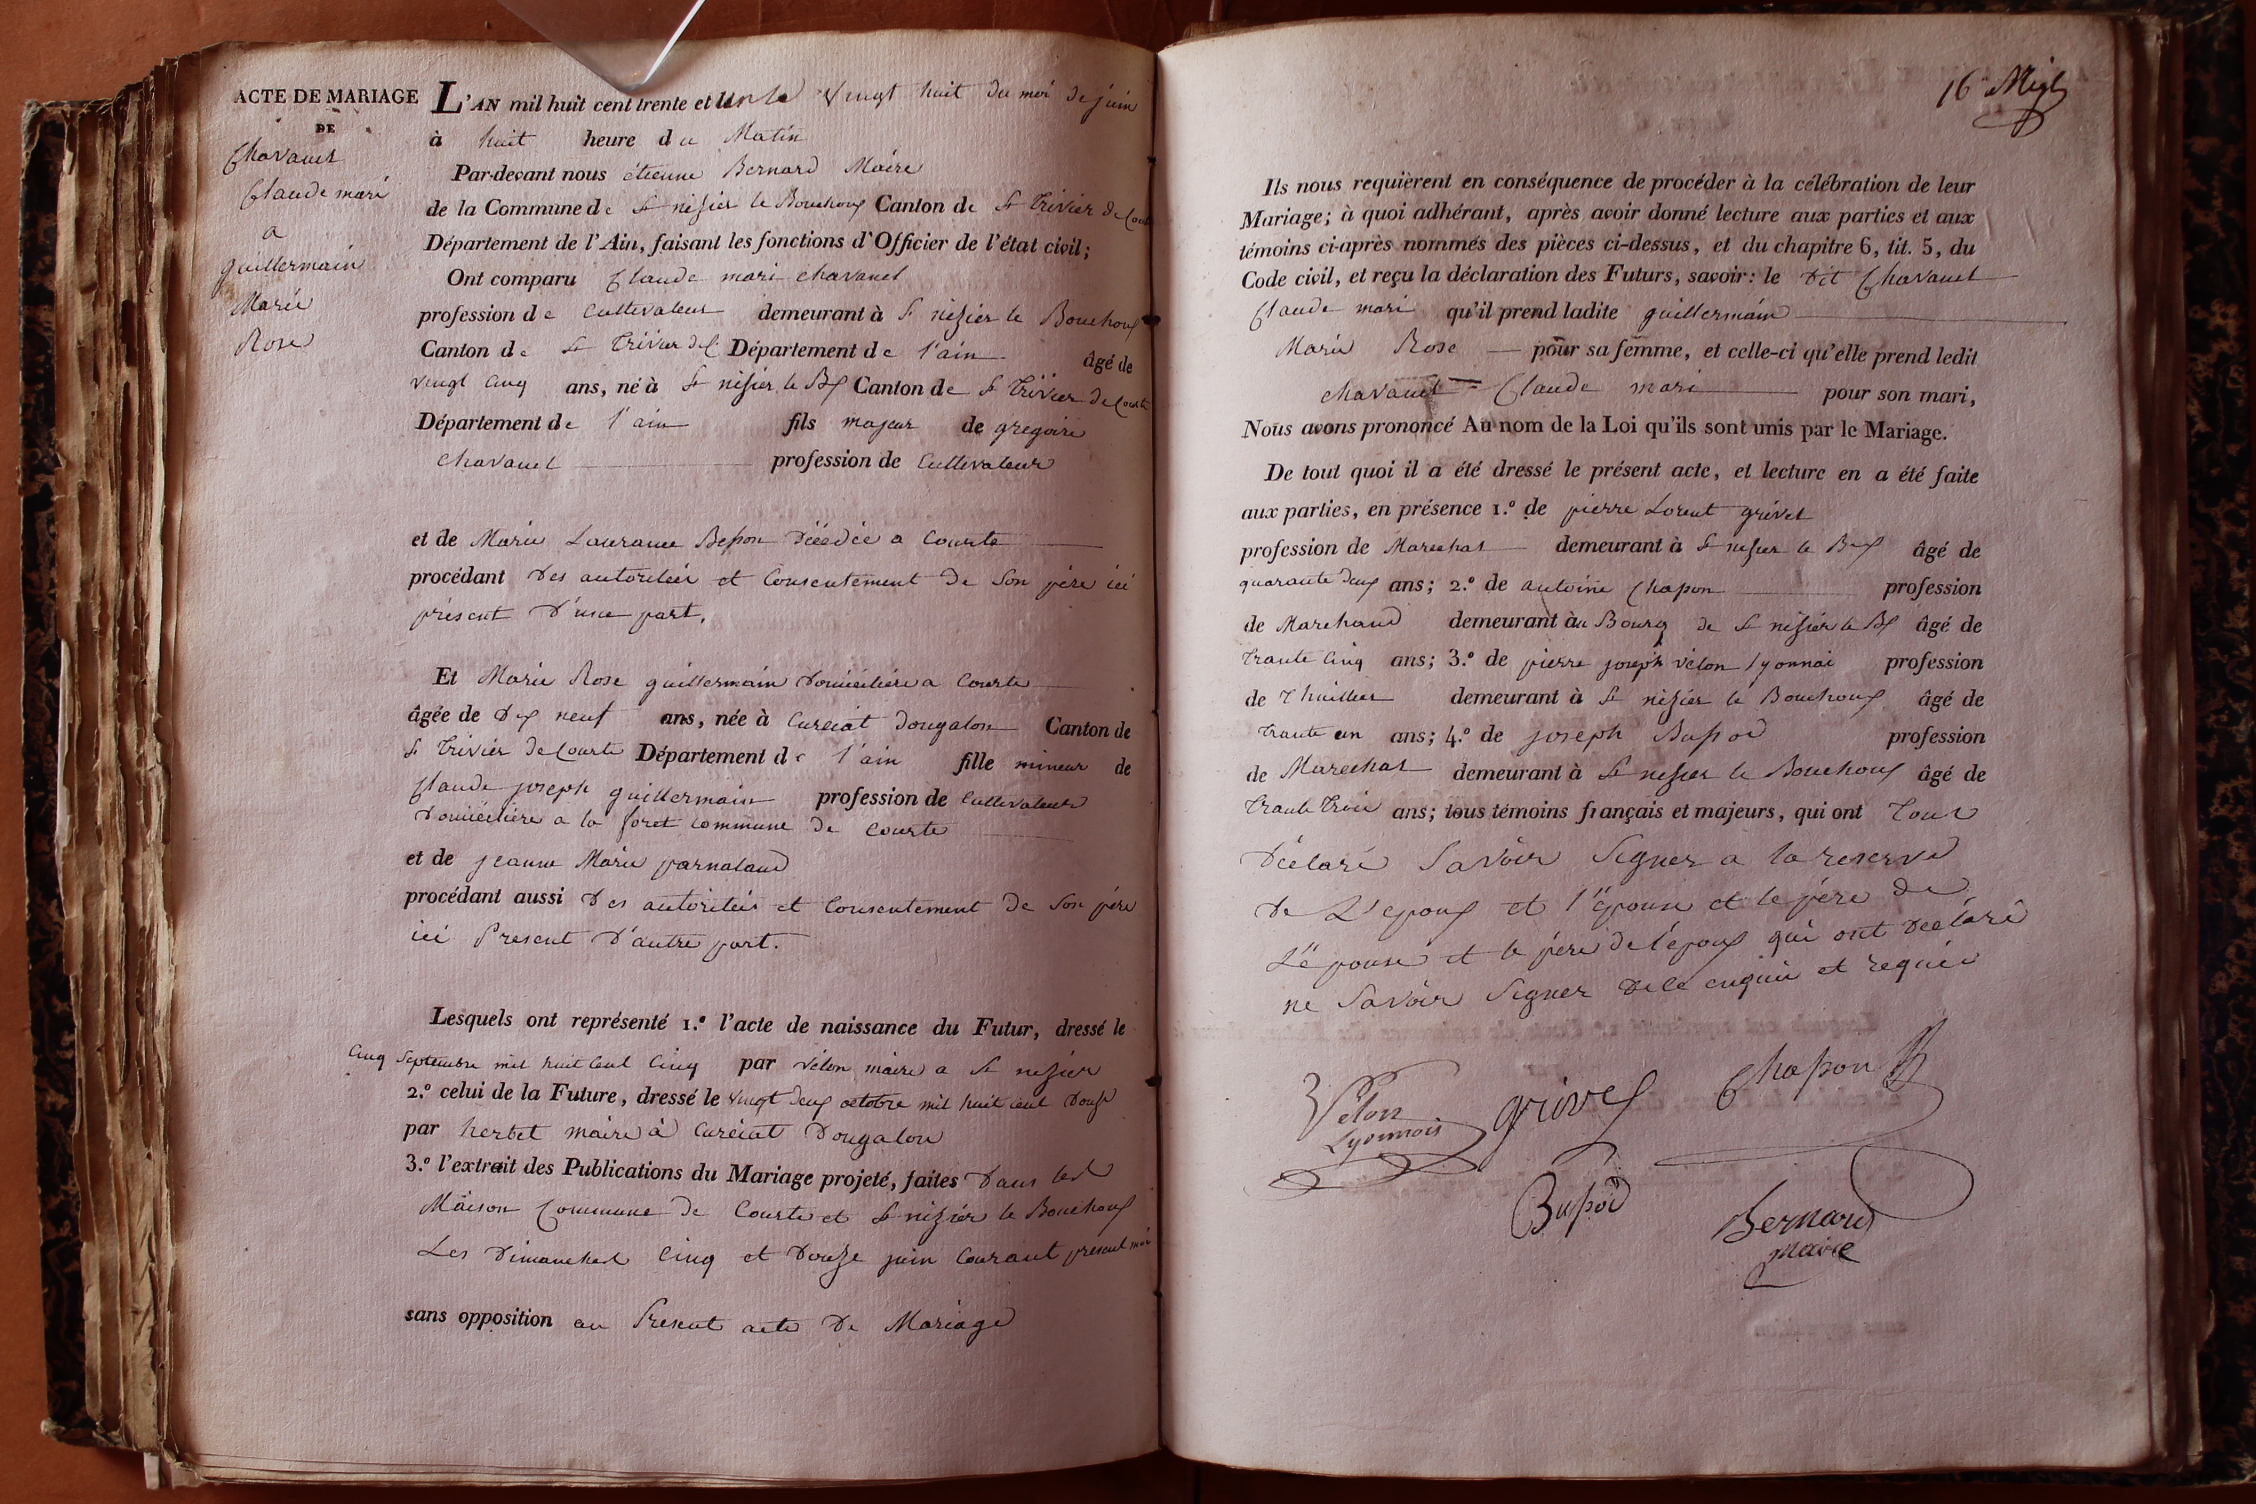 ACTE DE MARIAGE
DE
Chavanet
Claude mari
a
guillermain
Marie
Rose
L'AN mil huit cent trente et un le vingt huit du moi de juin
à huit heure du Matin
Par-devant nous étienne Bernard Maire
de la Commune de St nizier le Bouchoux Canton de St Trivier de Courte
Département de l'Ain, faisant les fonctions d'Officier de l'état civil;
Ont comparu Claude mari chavanet
profession de Cultivateur demeurant à St nizier le Bouchoux
Canton de St Trivier de C Département de l'ain âgé de
vingt cinq ans, né à St nisier le Bx Canton de St Trivier de Courte
Département de l'ain fils majeur de gregoire
chavanet profession de Cultivateur
et de Marie Laurance Besson déédée a Courte
procédant des autoritéér et Consentement de Son père ici
présent d'une part,
Et Marie Rose guillermain Domiciliére a Courte
âgée de dix neuf ans, née à Curciat dongalon Canton de
St Trivier de Courte Département de l'ain fille mineur de
Claude joseph guillermain profession de Cultivateur
Domiciliére a la foret commune de Courte
et de jeanne Marie parnaland
procédant aussi des autoritéér et Consentement de Son père
ici Present d'autre part.
Lesquels ont représenté 1.º l'acte de naissance du Futur, dressé le
Cinq Septembre mil huit Cent Cinq par vélon maire a St nizier
2.º celui de la Future, dressé le vingt deux octobre mil huit cent Douze
par herbet maire à Curciat Dongalon
3.º l'extrait des Publications du Mariage projeté, faites Dans les
Maison Commune de Courte et St nizier le Bouchoux
Les Dimanches Cinq et Douze juin Courant present moi
sans opposition au Present acte De Mariage
16e
Ils nous requièrent en conséquence de procéder à la célébration de leur
Mariage; à quoi adhérant, après avoir donné lecture aux parties et aux
témoins ci-après nommés des pièces ci-dessus, et du chapitre 6, tit. 5, du
Code civil, et reçu la déclaration des Futurs, savoir: le dit Chavanet
Claude mari qu'il prend ladite guillermain
Marie Rose pour sa femme, et celle-ci qu'elle prend ledit
chavanet Claude mari pour son mari,
Nous avons prononcé Au nom de la Loi qu'ils sont unis par le Mariage.
De tout quoi il a été dressé le présent acte, et lecture en a été faite
aux parties, en présence 1.º de pierre Lorent grivet
profession de Marechal demeurant à St nizier le Bx âgé de
quarante deux ans; 2.º de antoine Chapon profession
de Marchand demeurant au Bourg de St nizier le Bx âgé de
trante Cinq ans; 3.º de pierre joseph vélon lyonnai profession
de Thuillier demeurant à St nizier le Bouchoux âgé de
trante un ans; 4.º de joseph Bussod profession
de Marechal demeurant à St nizier le Bouchoux âgé de
trante trois ans; tous témoins français et majeurs, qui ont Tous
Déclaré Savoir Signer a la reserve
De L'epoux et l'épouse et le père de
L'épouse et le père de l'époux qui ont Déclaré
ne Savoir Signer de ce enquis et requis
Vélon
Lyonnois
grivet
Chapon
Bussod
Bernard
Maire